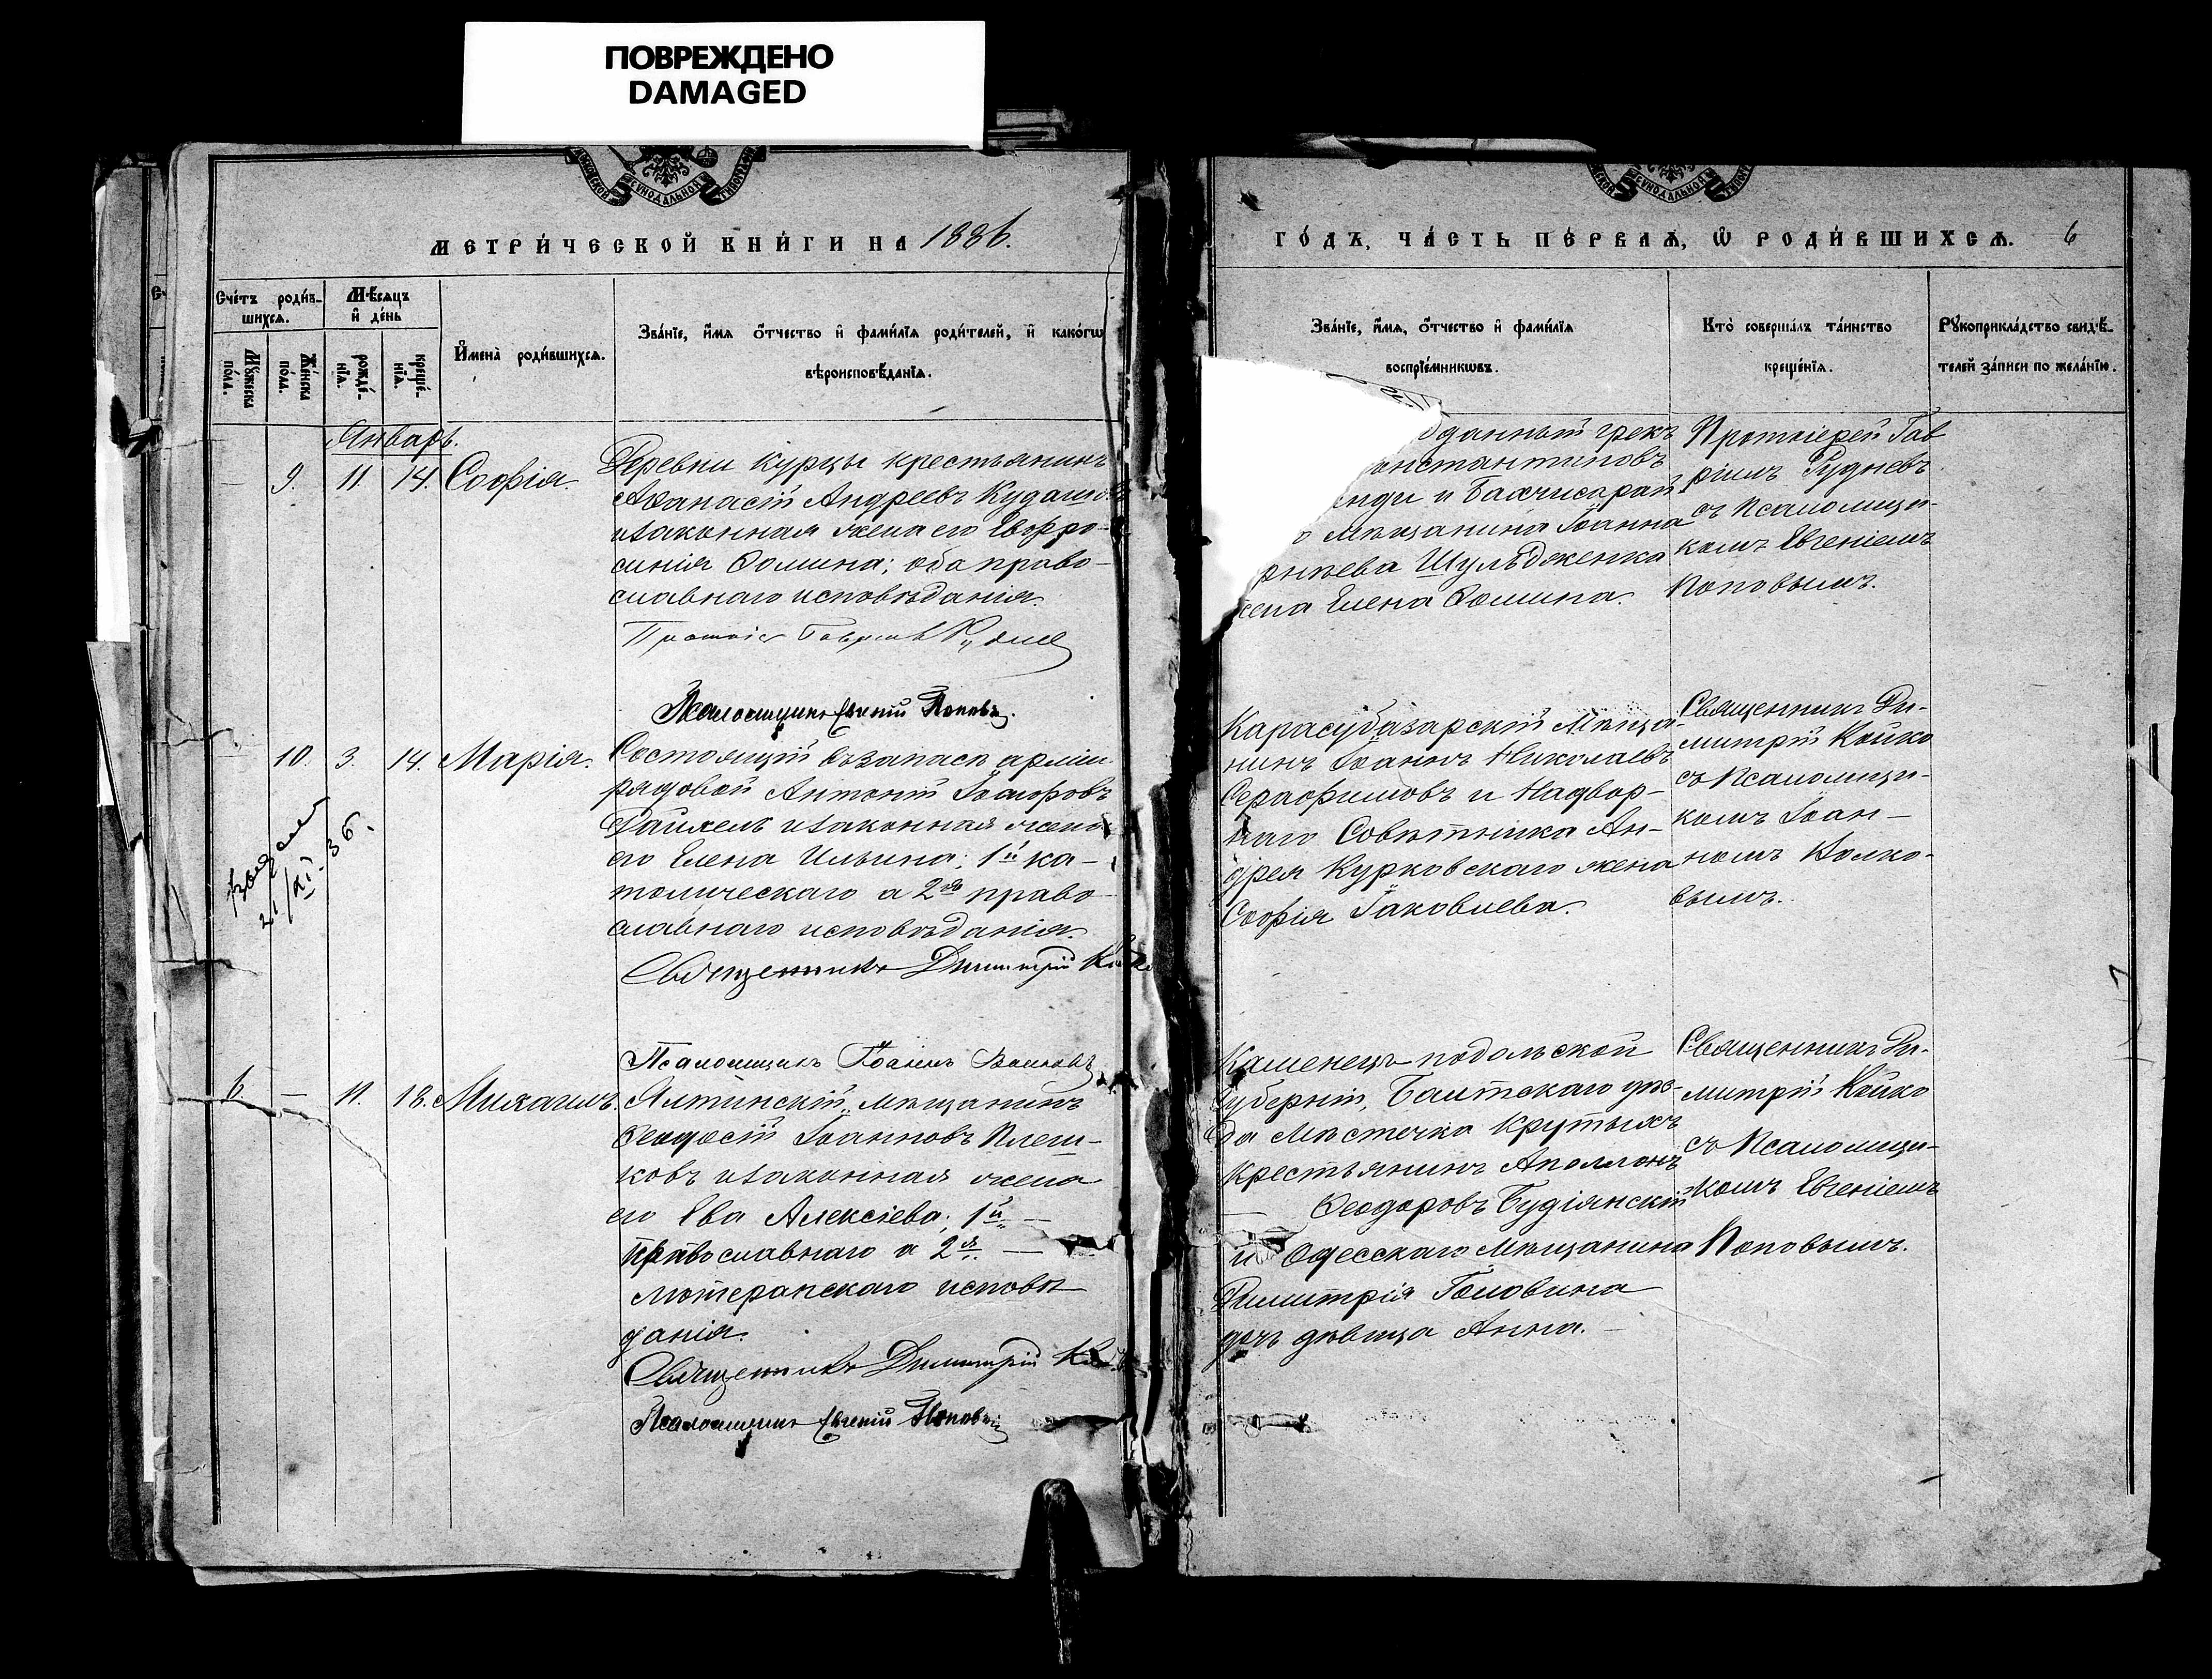 ПОВРЕЖДЕНО
DAMAGED
МЕТРИ́ЧЕСКОЙ КНИ́ГИ НА 1886.
Сче́тъ роди́в-
шихсѧ.
Мѣ́сѧцъ
и҆ де́нь
Мꙋ́жеска
по́ла.
Же́нска
по́ла.
рожде́-
нїѧ.
креще́-
нїѧ.
И҆мена̀ роди́вшихсѧ.
Зва́нїе, и҆́мѧ ѻ҆́тчество и҆ фами́лїѧ роди́телей, и҆ како́гѡ
вѣроисповѣ́данїѧ.
Январь.
9. 11. 14. Софія.
Деревни Курцы крестьянинъ
Аѳанасій Андреевъ Кудашовъ
и законная жена его Евфро-
синія Ѳомина; оба право-
славнаго исповѣданія.
Псаломщикъ Евгеній Поповъ.
10. 3. 14. Марія.
Состоящій въ запасѣ арміи
рядовой Антоній
и законная жена
его Елена Ильина; 1й ка-
толическаго а 2я право-
славнаго исповѣданія.
Священникъ Димитрій Койко
21/XI 36.
Псаломщикъ Іоаннъ Волковъ
6. — 11. 18. Михаилъ.
Ялтинскій мѣщанинъ
Ѳеодосій Іоанновъ Плеш-
ковъ и законная жена
его Ева Алексіева; 1й —
православнаго а 2я —
лютеранскаго исповѣ
данія.
Священникъ Димитрій
Псаломщикъ Евгеній Поповъ
ГО́ДЪ, ЧА́СТЬ ПЕ́РВАѦ, Ѡ҆ РОДИ́ВШИХСѦ. 6
Зва́нїе, и҆́мѧ, ѻ҆́тчество и҆ фами́лїѧ
воспрїе́мникѡвъ.
Кто̀ соверша́лъ та́инство
креще́нїѧ.
Рꙋкоприкла́дство свидѣ́-
телей за́писи по жела́нїю.
данный грекъ
онстантиновъ
и Бахчисарай
мѣщанина Іоанна
Шульдженка
жена Елена Ѳомина.
Протоіерей Гав
ріилъ Рудневъ
съ Псаломщи-
комъ Евгеніемъ
Поповымъ.
Карасубазарскій Мѣща-
нинъ Іоаннъ Николаевъ
Серафимовъ и Надвор-
наго Совѣтника Ан-
дрея Курковскаго жена
Софія Іаковлева.
Священникъ Ди-
митрій Койко
съ Псаломщи-
комъ Іоан-
номъ Волко-
вымъ.
Каменецъ-подольской
Губерніи, Балтскаго уѣз-
да Мѣстечка Крутыхъ
Крестьянинъ Аполлонъ
Ѳеодоровъ Будіянскій
и Одесскаго Мѣщанина
Димитрія Головина
дочь дѣвица Анна. —
Священникъ Ди-
митрій Койко
съ Псаломщи-
комъ Евгеніемъ
Поповымъ.